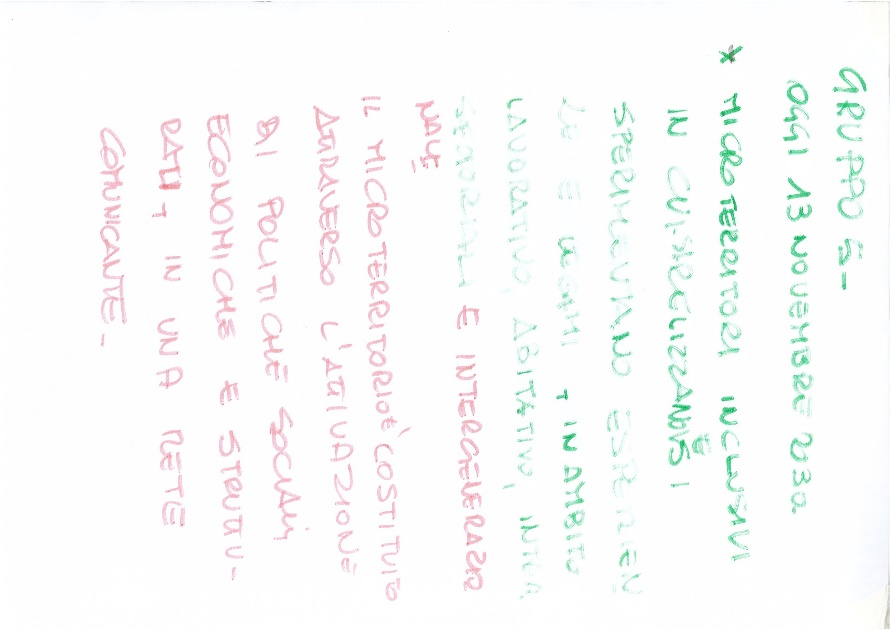 GRUPPO 5-
OGGI 13 NOVEMBRE 2030.
* MICROTERRITORI INCLUSIVI
IN CUI SI REALIZZANO E SI
SPERIMENTANO ESPERIEN
ZE E LEGAMI, IN AMBITO
LAVORATIVO, ABITATIVO, INTRA
E INTERGENERAZIO
NALE
IL MICROTERRITORIO È COSTITUITO
ATTRAVERSO L'ATTIVAZIONE
DI POLITICHE SOCIALI,
ECONOMICHE E STRUTTU-
RALI, IN UNA RETE
COMUNICANTE.